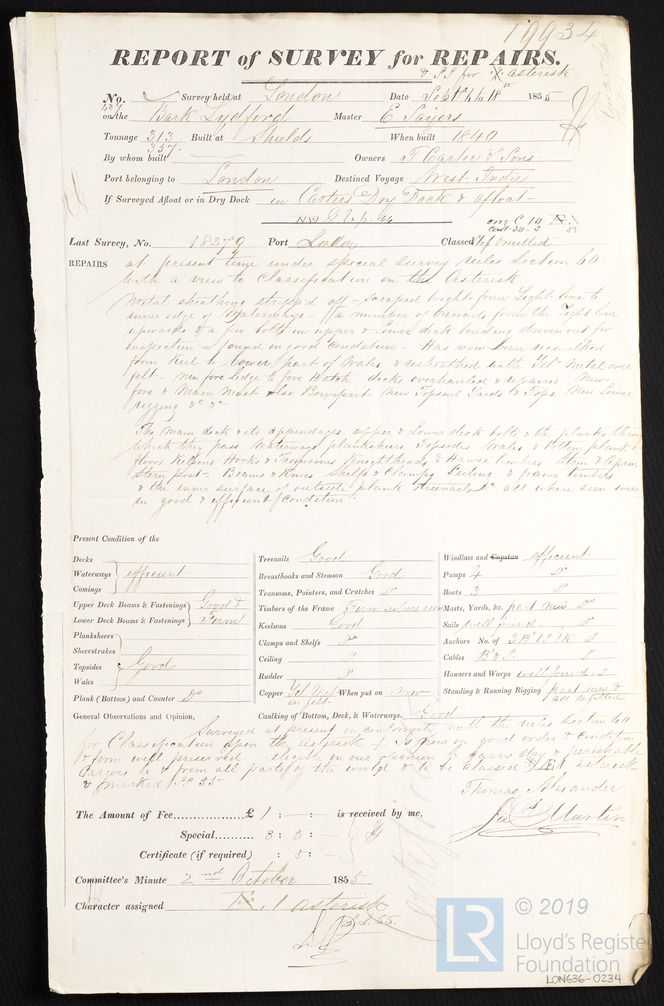 19934
REPORT of SURVEY for REPAIRS.
& S.S. for asterisk
No. Survey held at London Date Septr 4 to 18th 1855
on the Bark Lydford Master E Sayers
Tonnage 313 Built at Shields When built 1840
357
By whom built Owners T Carter & Sons
Port belonging to London Destined Voyage West Indies
If Surveyed Afloat or in Dry Dock in Carters Dry Dock & afloat
Last Survey, No. 18379 Port London Classed omitted
REPAIRS at present time under special survey rules Section 60
with a view to Classification in the Asterisk
Metal sheathing stripped off scraped bright from Light line to
inner edge of Waterways a number of treenails from the Light line
upwards & a few bolts in upper & Lower deck binding driven out for
inspection found in good condition. Has now been recaulked
from Keel to lower part of Wales & resheathed with Yel Metal over
felt. new fore ledge to fore Hatch decks overhauled & repaired New
fore & Main Mast also Bowsprit New Topsail Yards & Tops New Lower
rigging &c &c
The main deck & its appendages upper & Lower deck bolts & the planks through
which they pass Waterways planksheers Topsides Wales & bottom plank
floors Kelsons Hooks & Transoms Knightheads & Hawse timbers Stem & Apron
Stern post Beams & Knees Shelfs & Clamps Ceiling frame timbers
& the inner surface of outside plank treenails &c all where seen were
in good & efficient Condition
Present Condition of the
Decks
Waterways efficient
Comings
Upper Deck Beams & Fastenings Good &
Lower Deck Beams & Fastenings Firm
Planksheers
Sheerstrakes
Topsides Good
Wales
Plank (Bottom) and Counter Do
Treenails Good
Breasthooks and Stemson Good
Transoms, Pointers, and Crutches Do
Timbers of the Frame Firm where seen
Keelsons Good
Clamps and Shelfs Do
Ceiling Do
Rudder Do
Copper Yel Met When put on new
on felt
Caulking of Bottom, Deck, & Waterways. Good
Windlass and Capstan efficient
Pumps 4 Do
Boats 3 Do
Masts, Yards, &c. part new Do
Sails well found Do
Anchors No. of 3 B 1 S 1 K Do
Cables
Hawsers and Warps well found
Standing & Running Rigging part new &
all refitted
General Observations and Opinion, Surveyed at present in conformity with the rules Section 60
for Classification upon the Asterisk is now in good order & condition
& form well preserved eligible in our opinion to carry dry & perishable
Cargoes to & from all parts of the world & to be classed Æ1 asterisk
& marked S.S. 55
Thomas Alexander
Jas Martin
The Amount of Fee £ 1 : is received by me,
Special 3 : 3 :
Certificate (if required) : 5 :
Committee's Minute 2nd October 1855
Character assigned Æ. 1 asterisk
S.S. 55
LR © 2019
Lloyd's Register
Foundation
LON636-0234